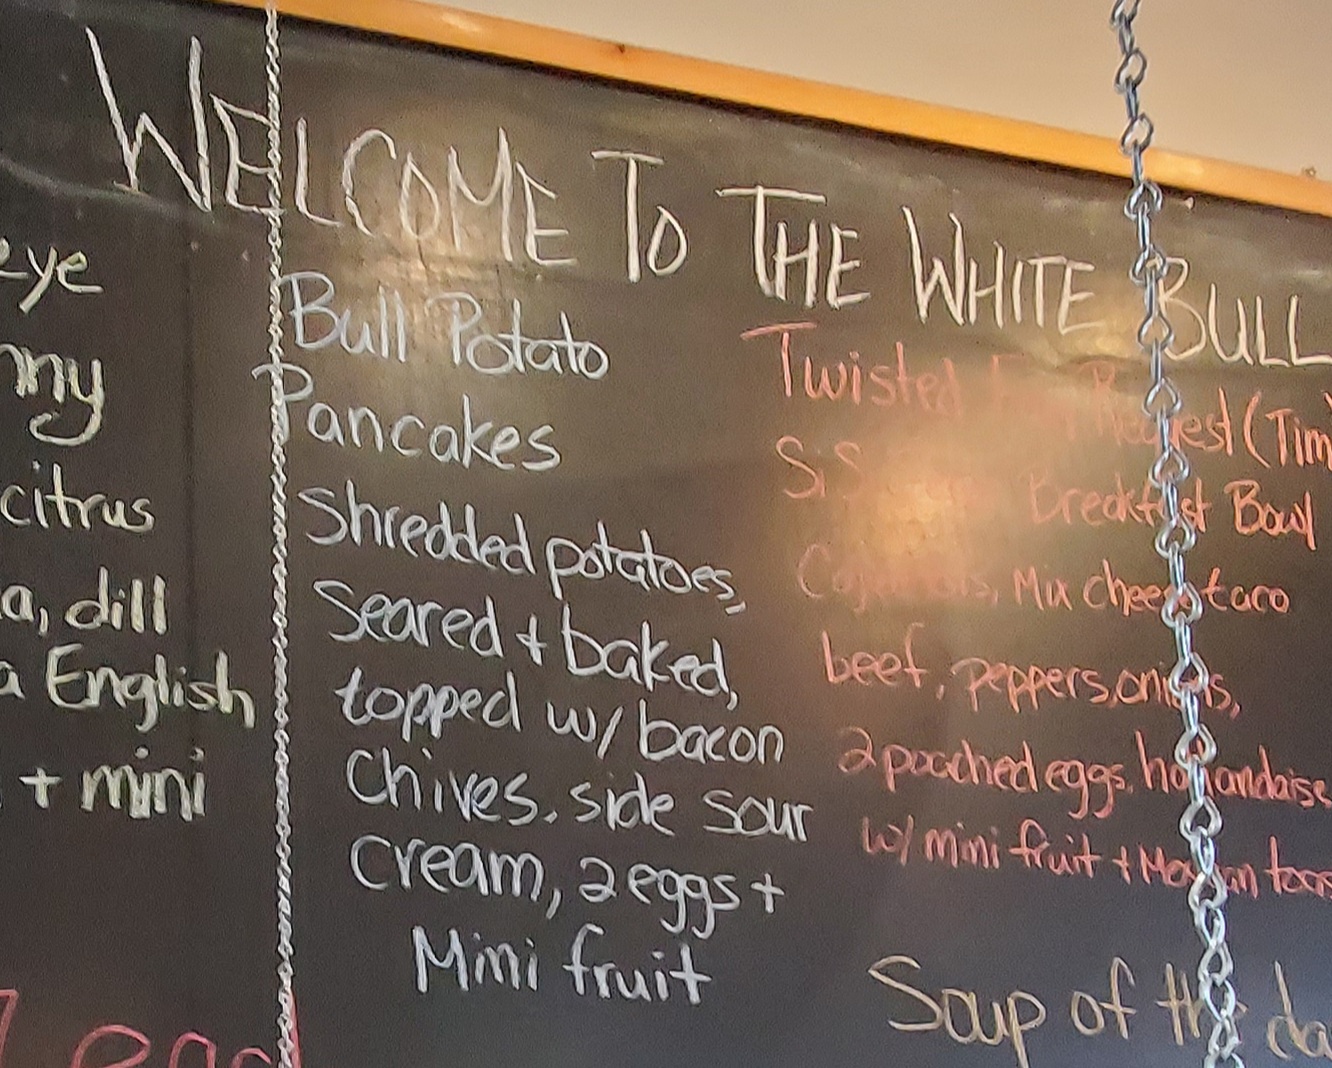 WELCOME TO THE WHITE BULL
eye
ny
citrus
a, dill
a English
+ mini
Bull Potato
Pancakes
Shredded potatoes,
Seared + baked,
topped w/ bacon
Chives, side sour
Cream, 2 eggs +
Mini fruit
Twisted Request (Tim
Breakfast Bowl
Mix cheese taco
beef, peppers, onions,
2 poached eggs, hollandaise
w/ mini fruit +
Soup of the da